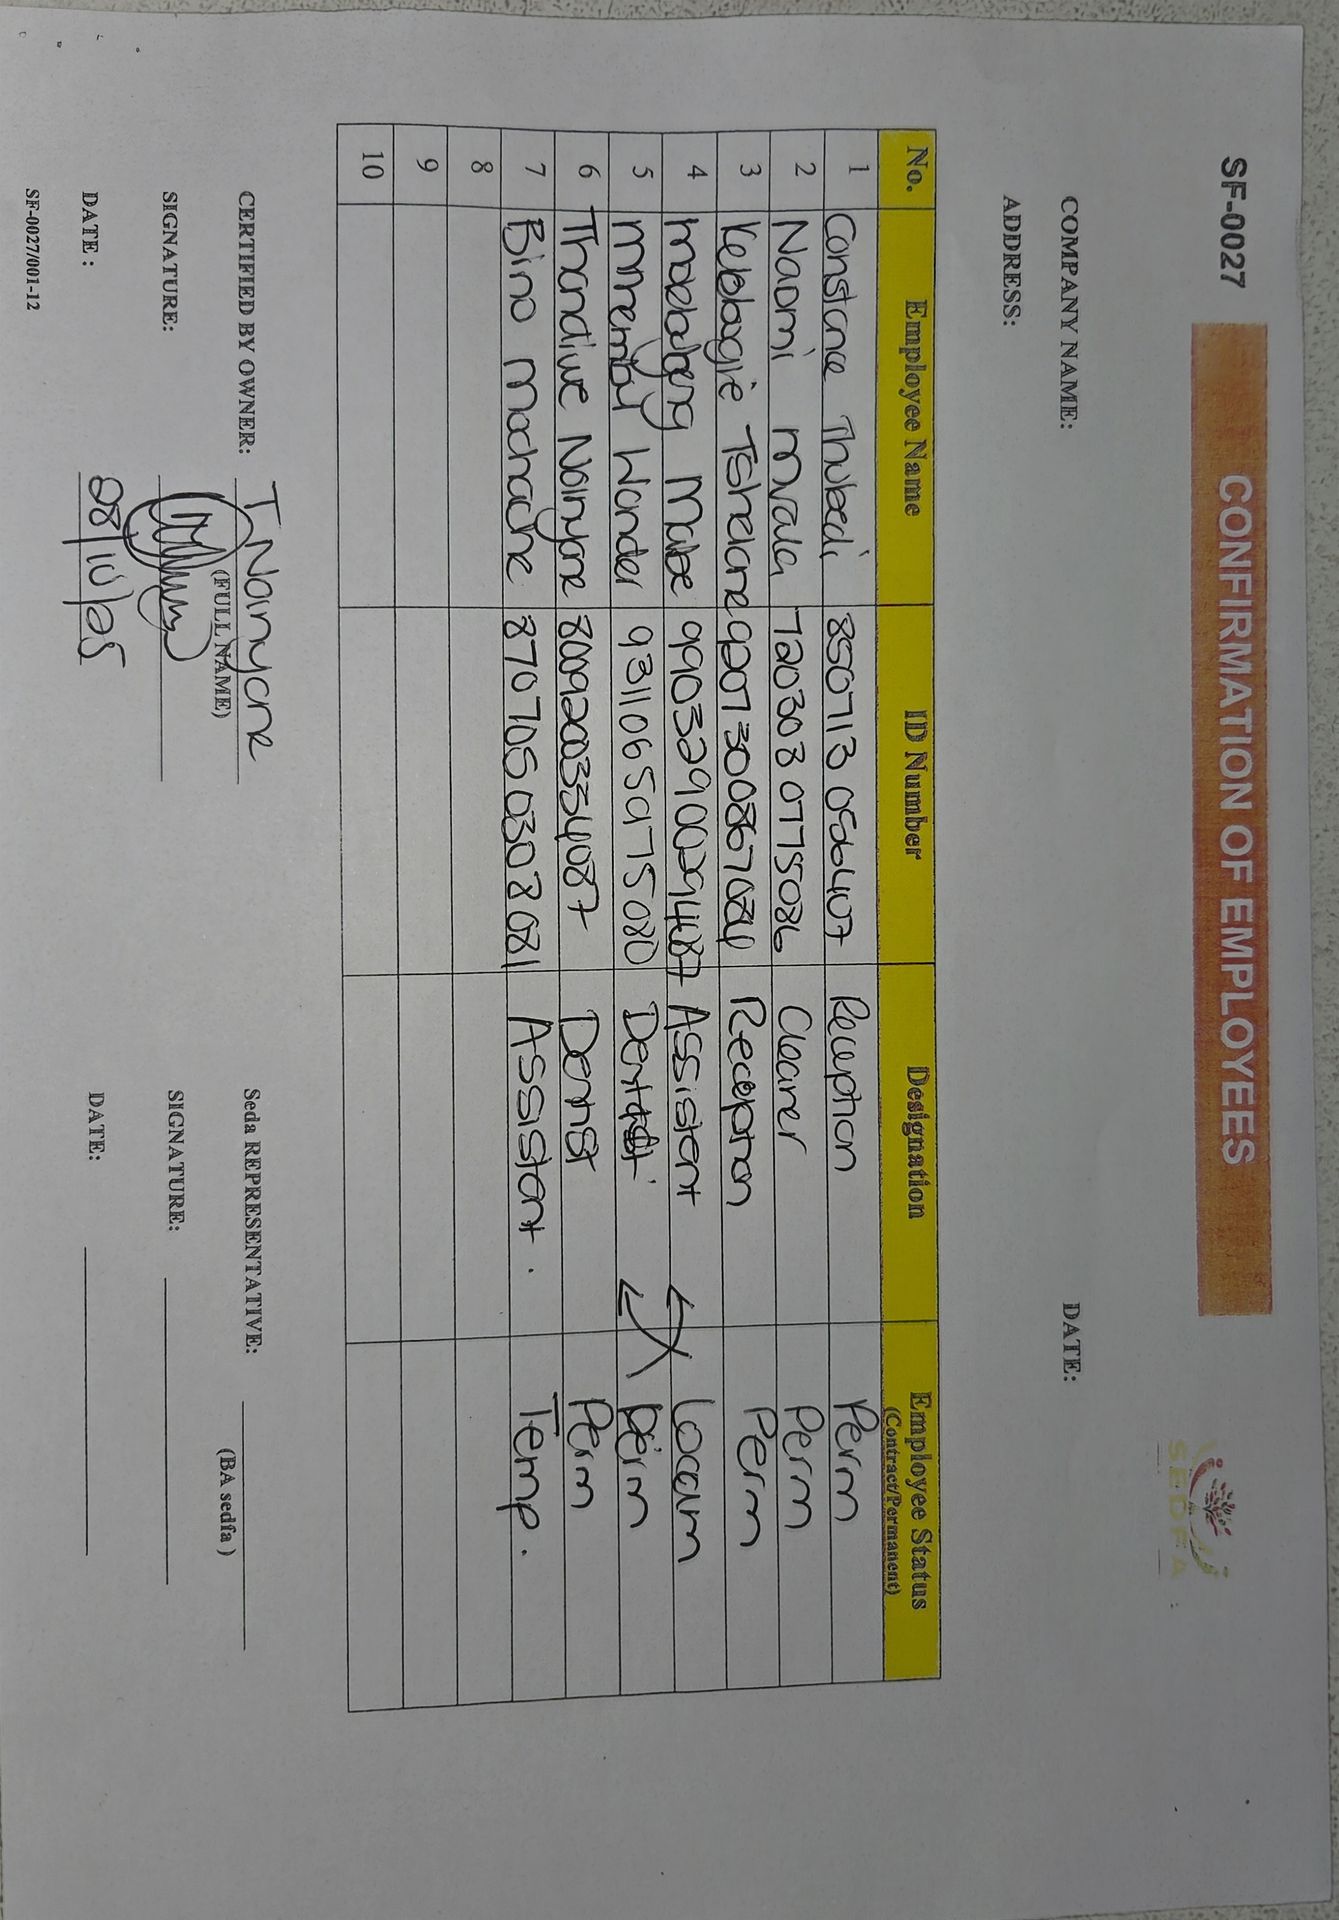 SF-0027
CONFIRMATION OF EMPLOYEES
SEDFA
COMPANY NAME: DATE:
ADDRESS:
No. Employee Name ID Number Designation Employee Status
(Contract/Permanent)
1 Constance Thubedi 850713 Reception Perm
2 Naomi Mvala 7203080775086 Cleaner Perm
3 Tshelane 9207300867084 Reception Perm
4 Mabe 9903290029487 Assistent Locum
5 Wonder 9311065975080 Dentist Perm
6 Thandiwe Noinyane 8009200334087 Dentist Perm
7 Bino Machache 8707050308081 Assistent. Temp.
8
9
10
CERTIFIED BY OWNER: T Noinyane Seda REPRESENTATIVE:
(FULL NAME) (BA sedfa )
SIGNATURE: SIGNATURE:
DATE : 08/10/25 DATE:
SF-0027/001-12